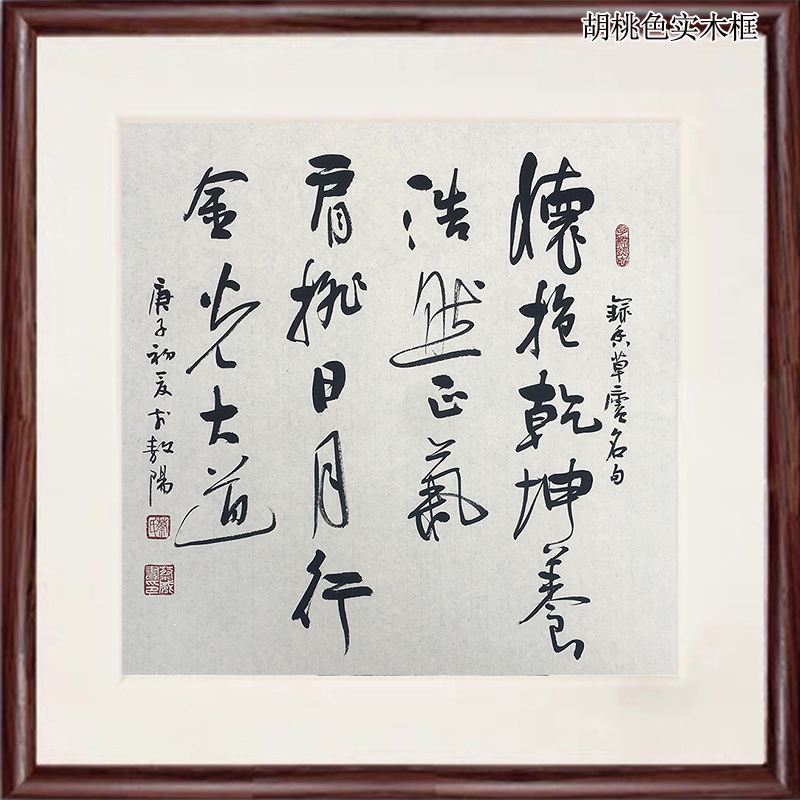 胡桃色实木框
録草廬名句
懷抱乾坤養
浩然正氣
肩挑日月行
金光大道
庚子初夏於陽